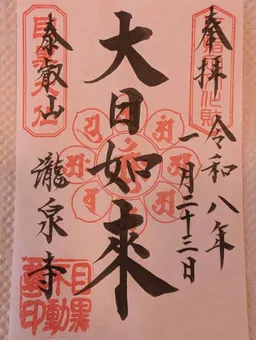 奉拝
令和八年
一月二十三日
大日如来
泰叡山
瀧泉寺
目黒
不動